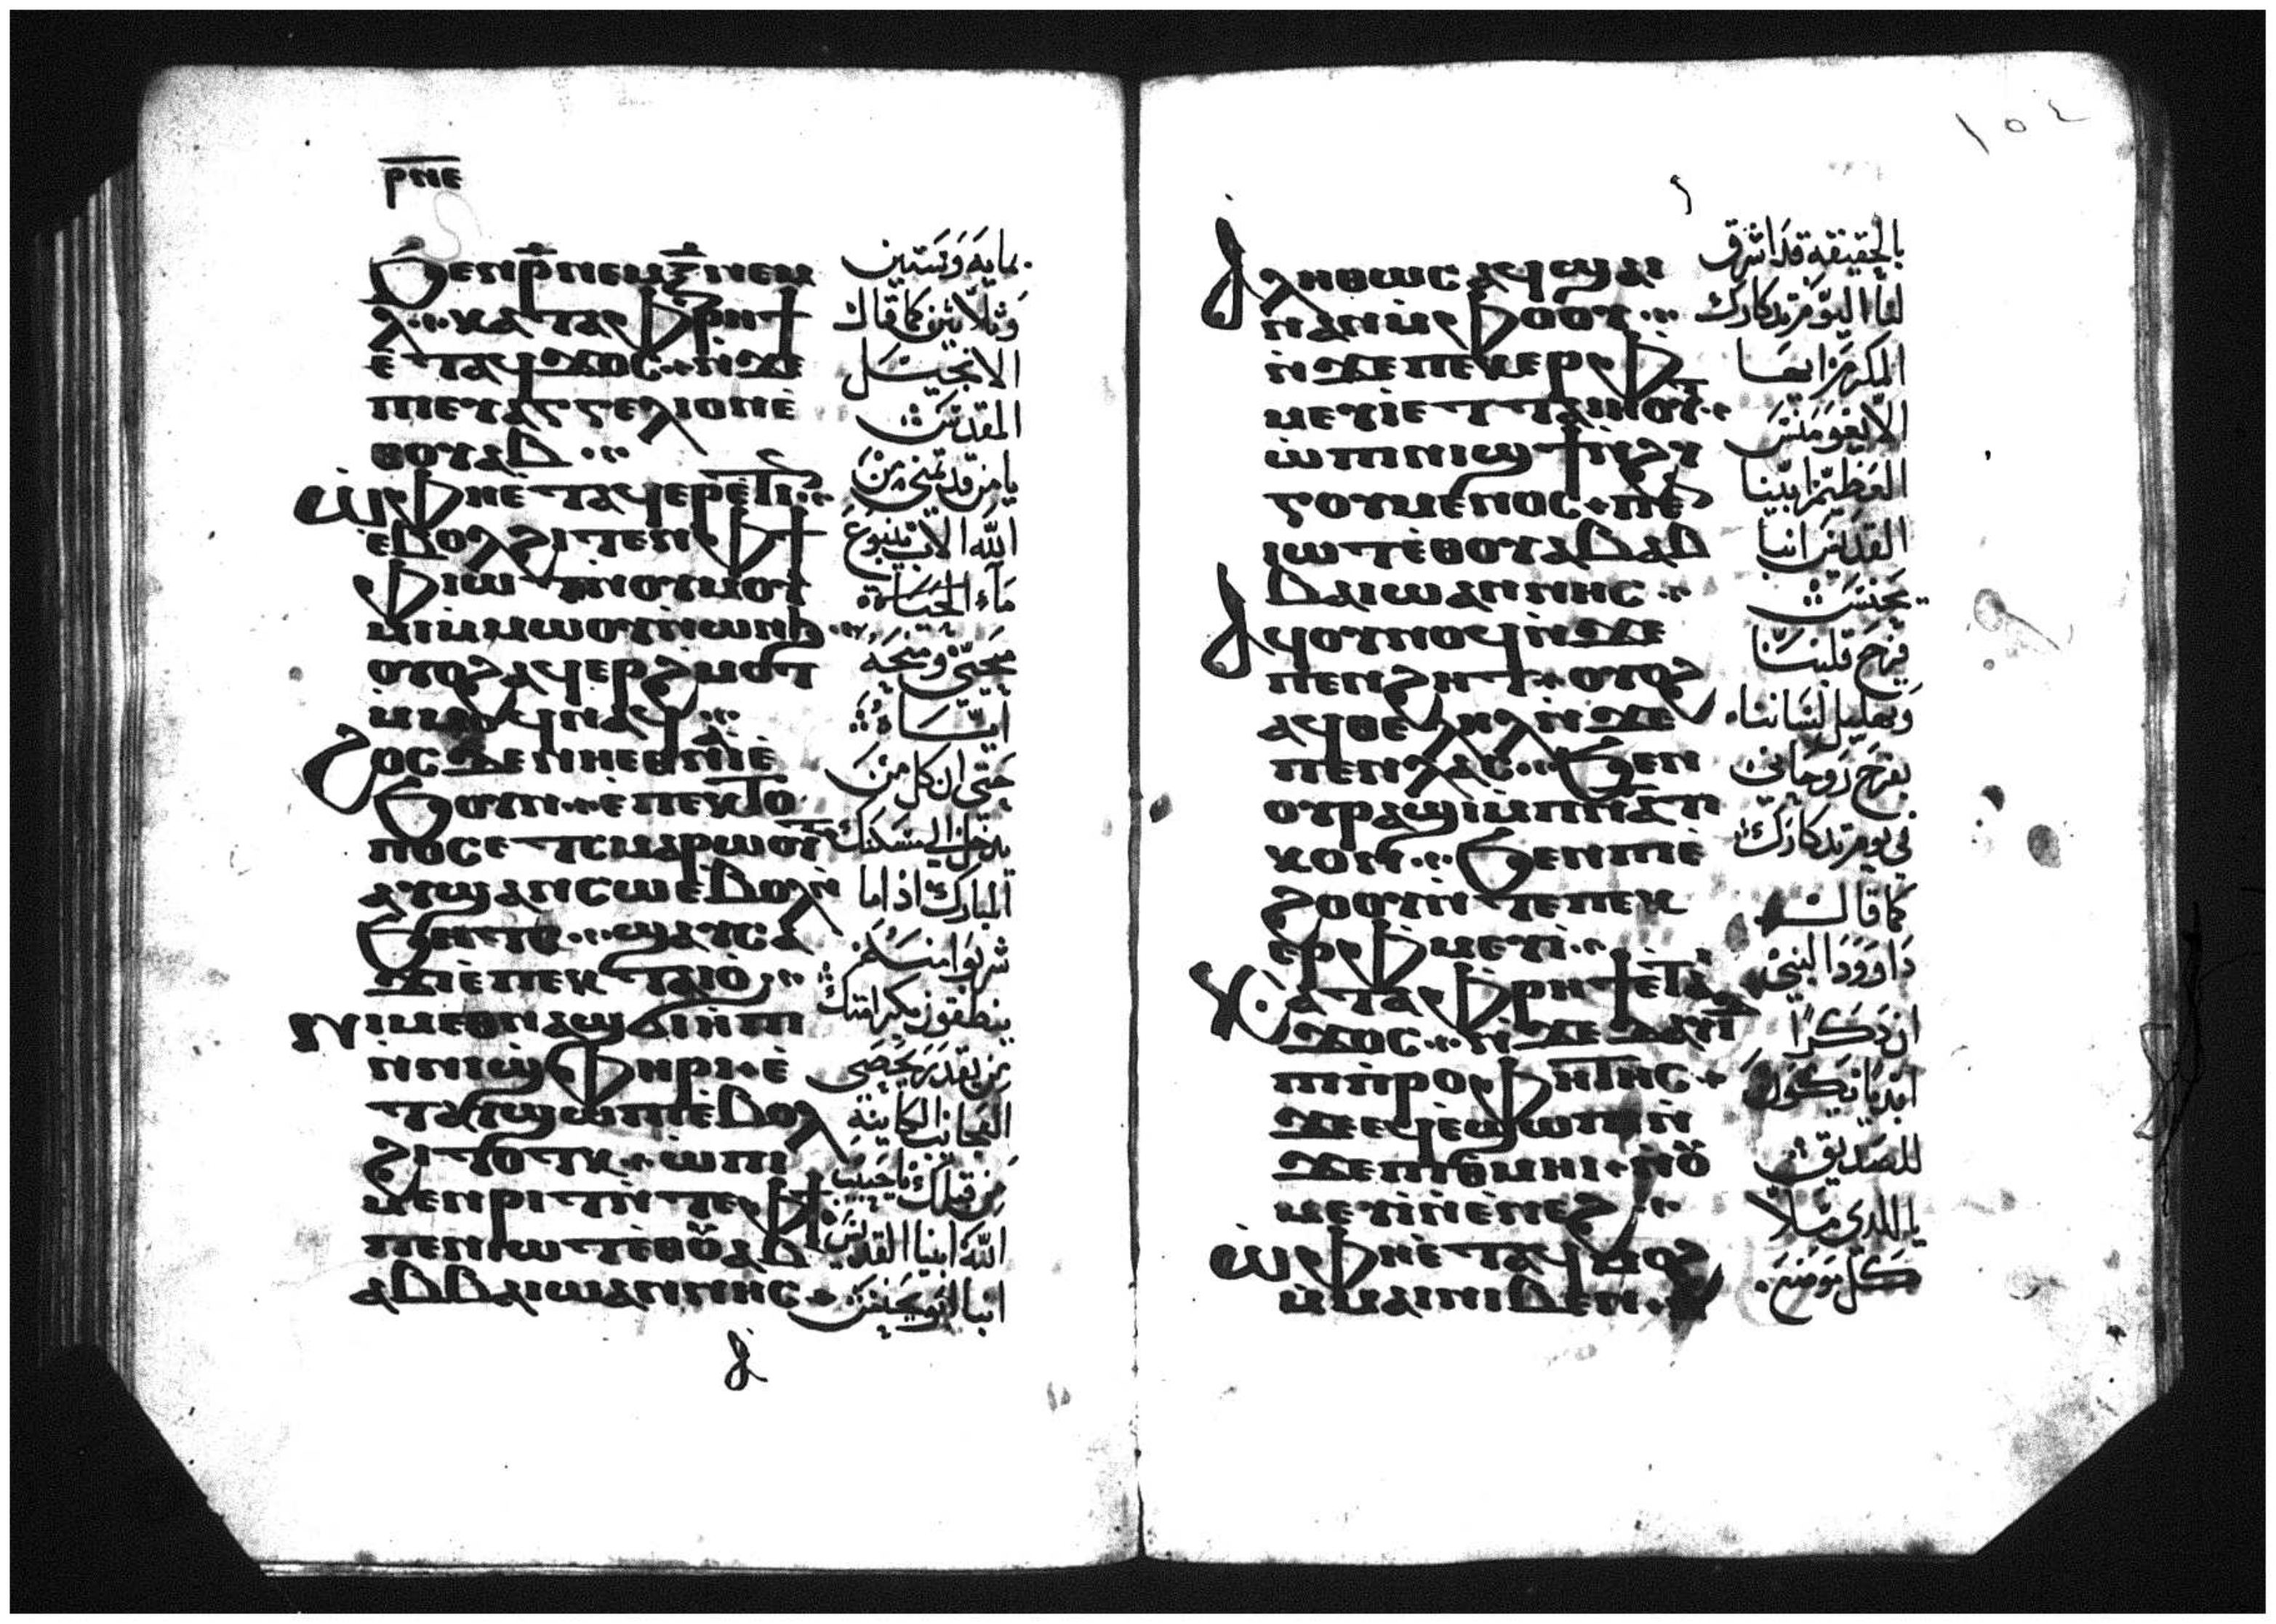 ⲣⲛⲉ
ϧⲉⲛⲣ̄ⲛⲉⲙⲝ̄ⲛⲉⲙ
ⲗ̄ ⲕⲁⲧⲁⲫⲣⲏϯ
ⲉ̀ⲧⲁϥϫⲟⲥ ⲛ̀ϫⲉ
ⲡⲓⲉⲩⲁⲅⲅⲉⲗⲓⲟⲛⲉ̀
ⲑⲟⲩⲁⲃ
ⲱ̀ⲫⲏⲉ̀ⲧⲁϥⲉⲣⲉ̀ⲧⲓⲛ
ⲉⲃⲟⲗϩⲓⲧⲉⲛⲫϯ
ⲫⲓⲱⲧ
ⲙ̀ⲙⲱⲟⲩⲛ̀ⲱⲛϧ
ⲟⲩⲟϩⲁϥⲉⲣϩⲙⲟⲧ
ⲙ̀ⲙⲟϥⲛⲁϥ
ϩⲟⲥϫⲉⲛⲏⲉⲑⲛⲏⲉ̀
ϧⲟⲩⲛ ⲉⲡⲉⲕⲧⲟ
ⲡⲟⲥⲉⲧⲥⲙⲁⲣⲱⲟⲩⲧ
ⲁⲩϣⲁⲛⲥⲱⲉⲃⲟⲗⲛ̀
ϧⲏⲧϥ ϣⲁⲩⲥⲁ
ϫⲓⲉ̀ⲡⲉⲕⲧⲁⲓⲟ̀
ⲛⲓⲙⲉⲑⲛⲁϣϭⲓⲏⲡⲓ
ⲛ̀ⲛⲓϣⲫⲏⲣⲓ ⲉ̀
ⲧⲁⲩϣⲱⲡⲓⲉ̀ⲃⲟⲗ
ϩⲓⲧⲟⲧⲕ ⲱ̀ⲡⲓ
ⲙⲉⲛⲣⲓⲧⲛ̀ⲧⲉⲫϯ
ⲡⲉⲛⲓⲱⲧⲉ̀ⲑⲟⲩⲁⲃ
ⲁⲃⲃⲁⲓⲱⲁⲛⲛⲏⲥ
بمايه وستين
وثلاثين كما قال
الانجيل
المقدس
يامن قد تمنى من
الله الاب ينبوع
ماء الحياة
محيى ومنحه
اياه
حتى ان كل من
يدخل الى مسكنك
المبارك اذا اما
شربوا منه
ينطقون بكرامتك
من يقدر يحصى
العجايب الكاينة
من قبلك يا حبيب
الله ابينا القديس
انبا ابو يحنس
١٥٤
ⲁⲗⲏⲑⲱⲥ ⲁϥϣⲁⲓ
ⲛⲁⲛⲙ̀ⲫⲟⲟⲩ
ⲛ̀ϫⲉⲡⲉⲕⲉⲣⲫ
ⲙⲉⲩⲓ̀ⲉⲧⲧⲁⲓⲏⲟⲩⲧ
ⲱ̀ⲡⲓⲛⲓϣϯⲛ̀ϩⲩ
ⲅⲟⲩⲙⲉⲛⲟⲥ ⲡⲉⲛ
ⲓⲱⲧⲉ̀ⲑⲟⲩⲁⲃⲁⲃ
ⲃⲁⲓⲱⲁⲛⲛⲏⲥ
ⲁϥⲟⲩⲛⲟϥⲛ̀ϫⲉ
ⲡⲉⲛϩⲏⲧ ⲟⲩⲟϩ
ⲁϥⲑⲉⲗⲏⲗⲛ̀ϫⲉ
ⲡⲉⲛⲗⲁⲥ ϧⲉⲛ
ⲟⲩⲣⲁϣⲓⲙ̀ⲡⲛⲁⲧⲓ
ⲕⲟⲛ ϧⲉⲛⲡⲓⲉ̀
ϩⲟⲟⲩⲛ̀ⲧⲉⲡⲉⲕ
ⲉⲣⲫⲙⲉⲩⲓ̀
ⲕⲁⲧⲁⲫⲣⲏϯⲉ̀ⲧⲁϥ
ϫⲟⲥ ⲛ̀ϫⲉⲇⲁⲩⲓⲇ
ⲡⲓⲡ̀ⲣⲟⲫⲏⲧⲏⲥ
ϫⲉⲉϥⲉ̀ϣⲱⲡⲓⲛ̀
ϫⲉⲡⲓⲑⲙⲏⲓ ⲛⲟⲩ
ⲙⲉⲩⲓ̀ⲛ̀ⲉⲛⲉϩ
ⲱ̀ⲫⲏⲉ̀ⲧⲁϥⲙⲟϩ
ⲙ̀ⲙⲁⲓⲛⲓⲃⲉⲛ
بالحقيقه قد اشرق
لنا اليوم تدكارك
المكرم ايها
الايغومنس
العظيم ابينا
القديس انبا
يحنس
فرح قلبنا
وتهليل لساننا
بفرح روحاني
في يوم تدكارك
كما قال
داوود النبي
ان ذكرا
ابديا يكون
للصديق
يا الدى ملا
كل موضع